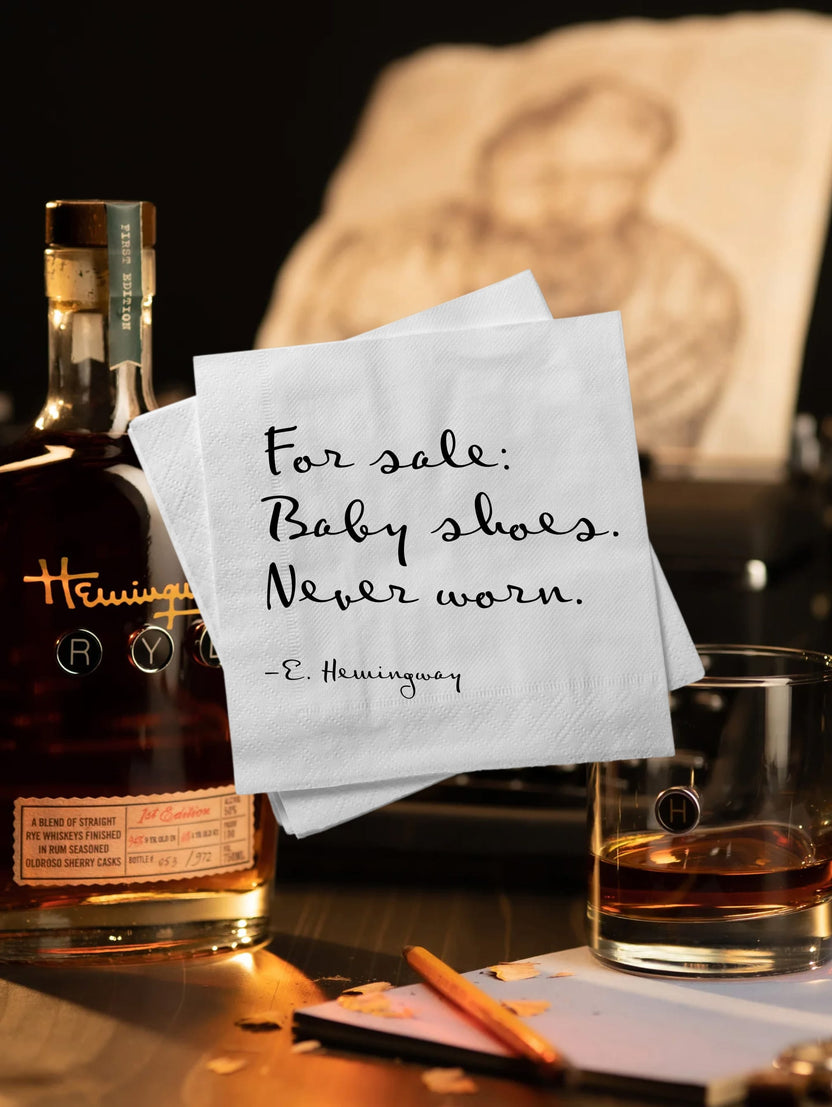 FIRST EDITION
For sale:
Baby shoes.
Never worn.
-E. Hemingway
R Y
A BLEND OF STRAIGHT
RYE WHISKEYS FINISHED
IN RUM SEASONED
OLOROSO SHERRY CASKS
1st Edition
BOTTLE # 053 / 972
H